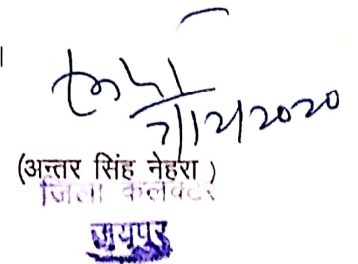 7/12/2020
(अन्तर सिंह नेहरा)
जिला कलक्टर
जयपुर